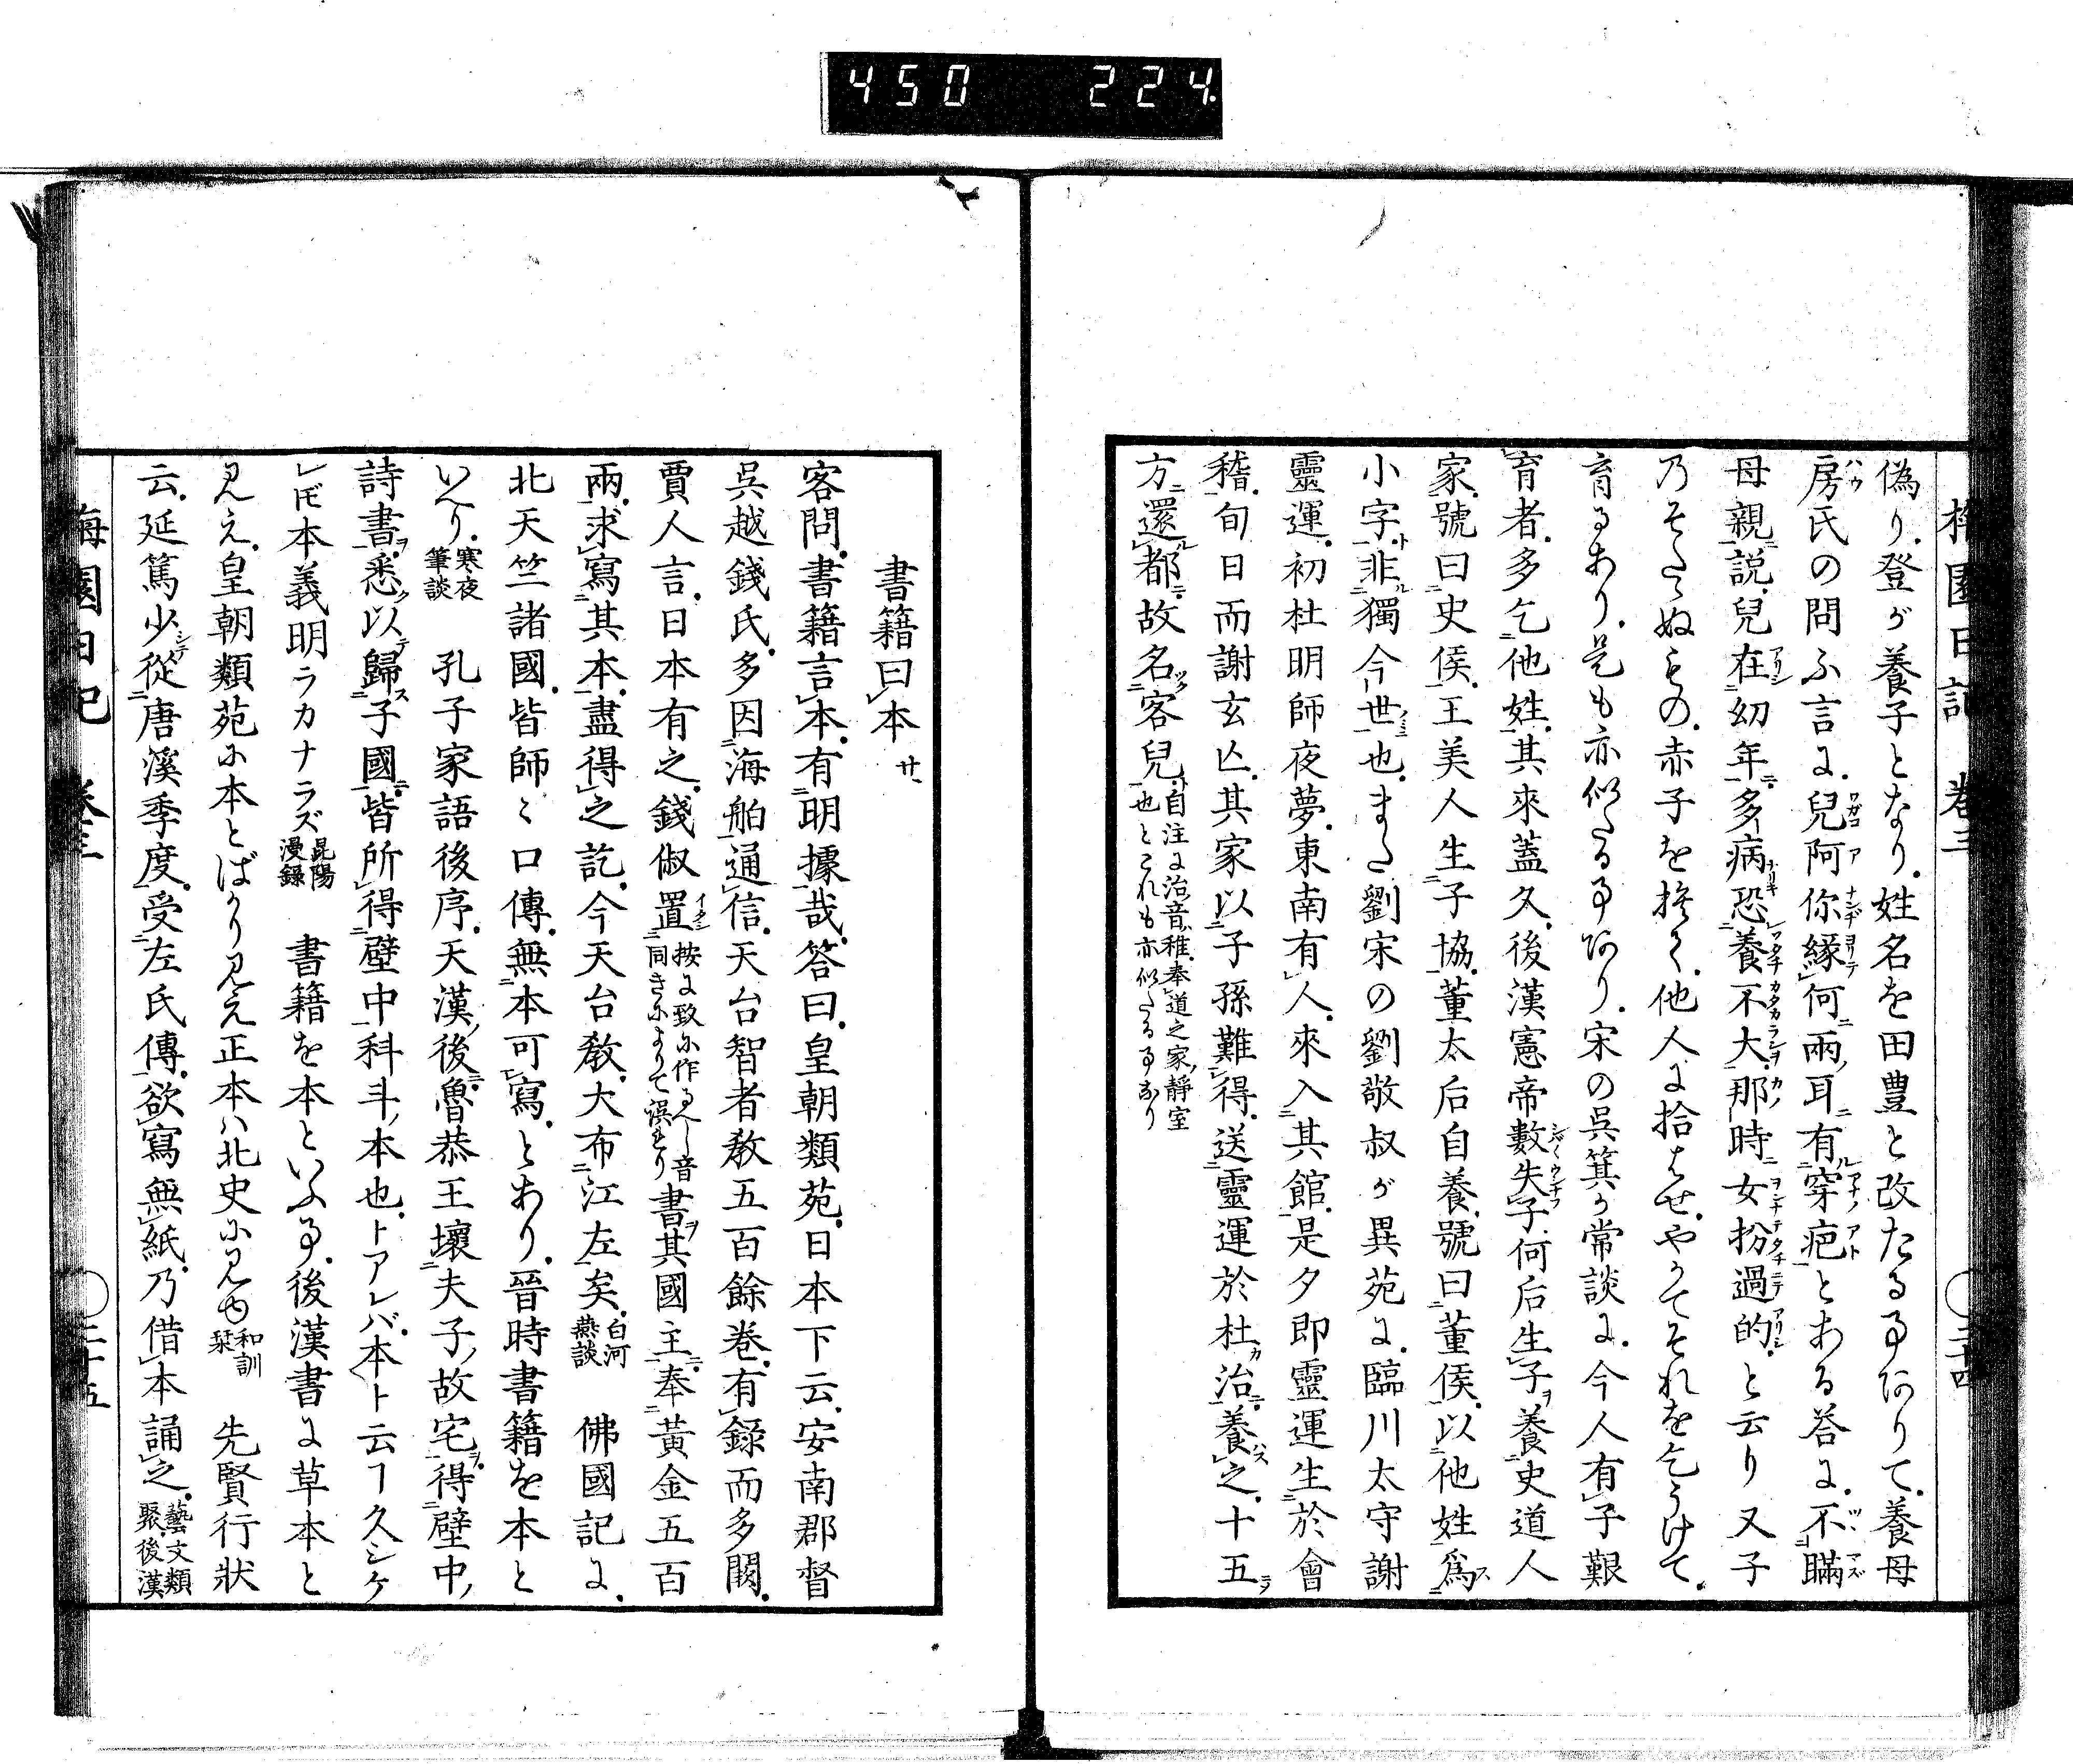 450 224
梅園日記 卷三 二十四
偽り登が養子となり姓名を田豊と改たる事ありて養母
房氏の問ふ言に兒阿你縁何兩耳有穿疤とある答に不瞞
母親説兒在幼年多病恐養不大那時女扮過的と云り又子
赤子を 他人に拾はせやがてそれを乞うけて
育る事あり是も亦似たる事なり宋の呉箕が常談に今人有子艱
育者多乞他姓其來蓋久後漢憲帝數失子何后生子養史道人
家號曰史侯王美人生子協董太后自養號曰董侯以他姓爲
小字非獨今世也また劉宋の劉敬叔が異苑に臨川太守謝
靈運初杜明師夜夢東南有人來入其館是夕即靈運生於會
稽旬日而謝玄亡其家以子孫難得送靈運於杜治養之十五
方還都故名客兒自注に治音稚奉道之家靜室也とこれも亦似たる事なり
書籍曰本 廿
客問書籍言本有明據哉答曰皇朝類苑日本下云安南郡督
呉越錢氏多因海舶通信天台智者教五百餘卷有録而多闕
賈人言日本有之錢俶置按に致に作るべし音同きによりて誤れり書其國主奉黄金五百
兩求寫其本盡得之訖今天台教大布江左矣白河燕談 佛國記に
北天竺諸國皆師〻口傳無本可寫とあり晉時書籍を本と
いへり寒夜筆談 孔子家語後序天漢後魯恭王壞夫子故宅得壁中
詩書悉以歸子國皆所得壁中科斗本也トアレバ本ト云ヿ久シケ
レ𪜈本義明ラカナラズ昆陽漫録 書籍を本といふ事後漢書に草本と
見え皇朝類苑に本とばかり見え正本ハ北史に見ゆ和訓栞 先賢行状
云延篤少從唐溪季度受左氏傳欲寫無紙乃借本誦之藝文類聚後漢
梅園日記 卷三 二十五